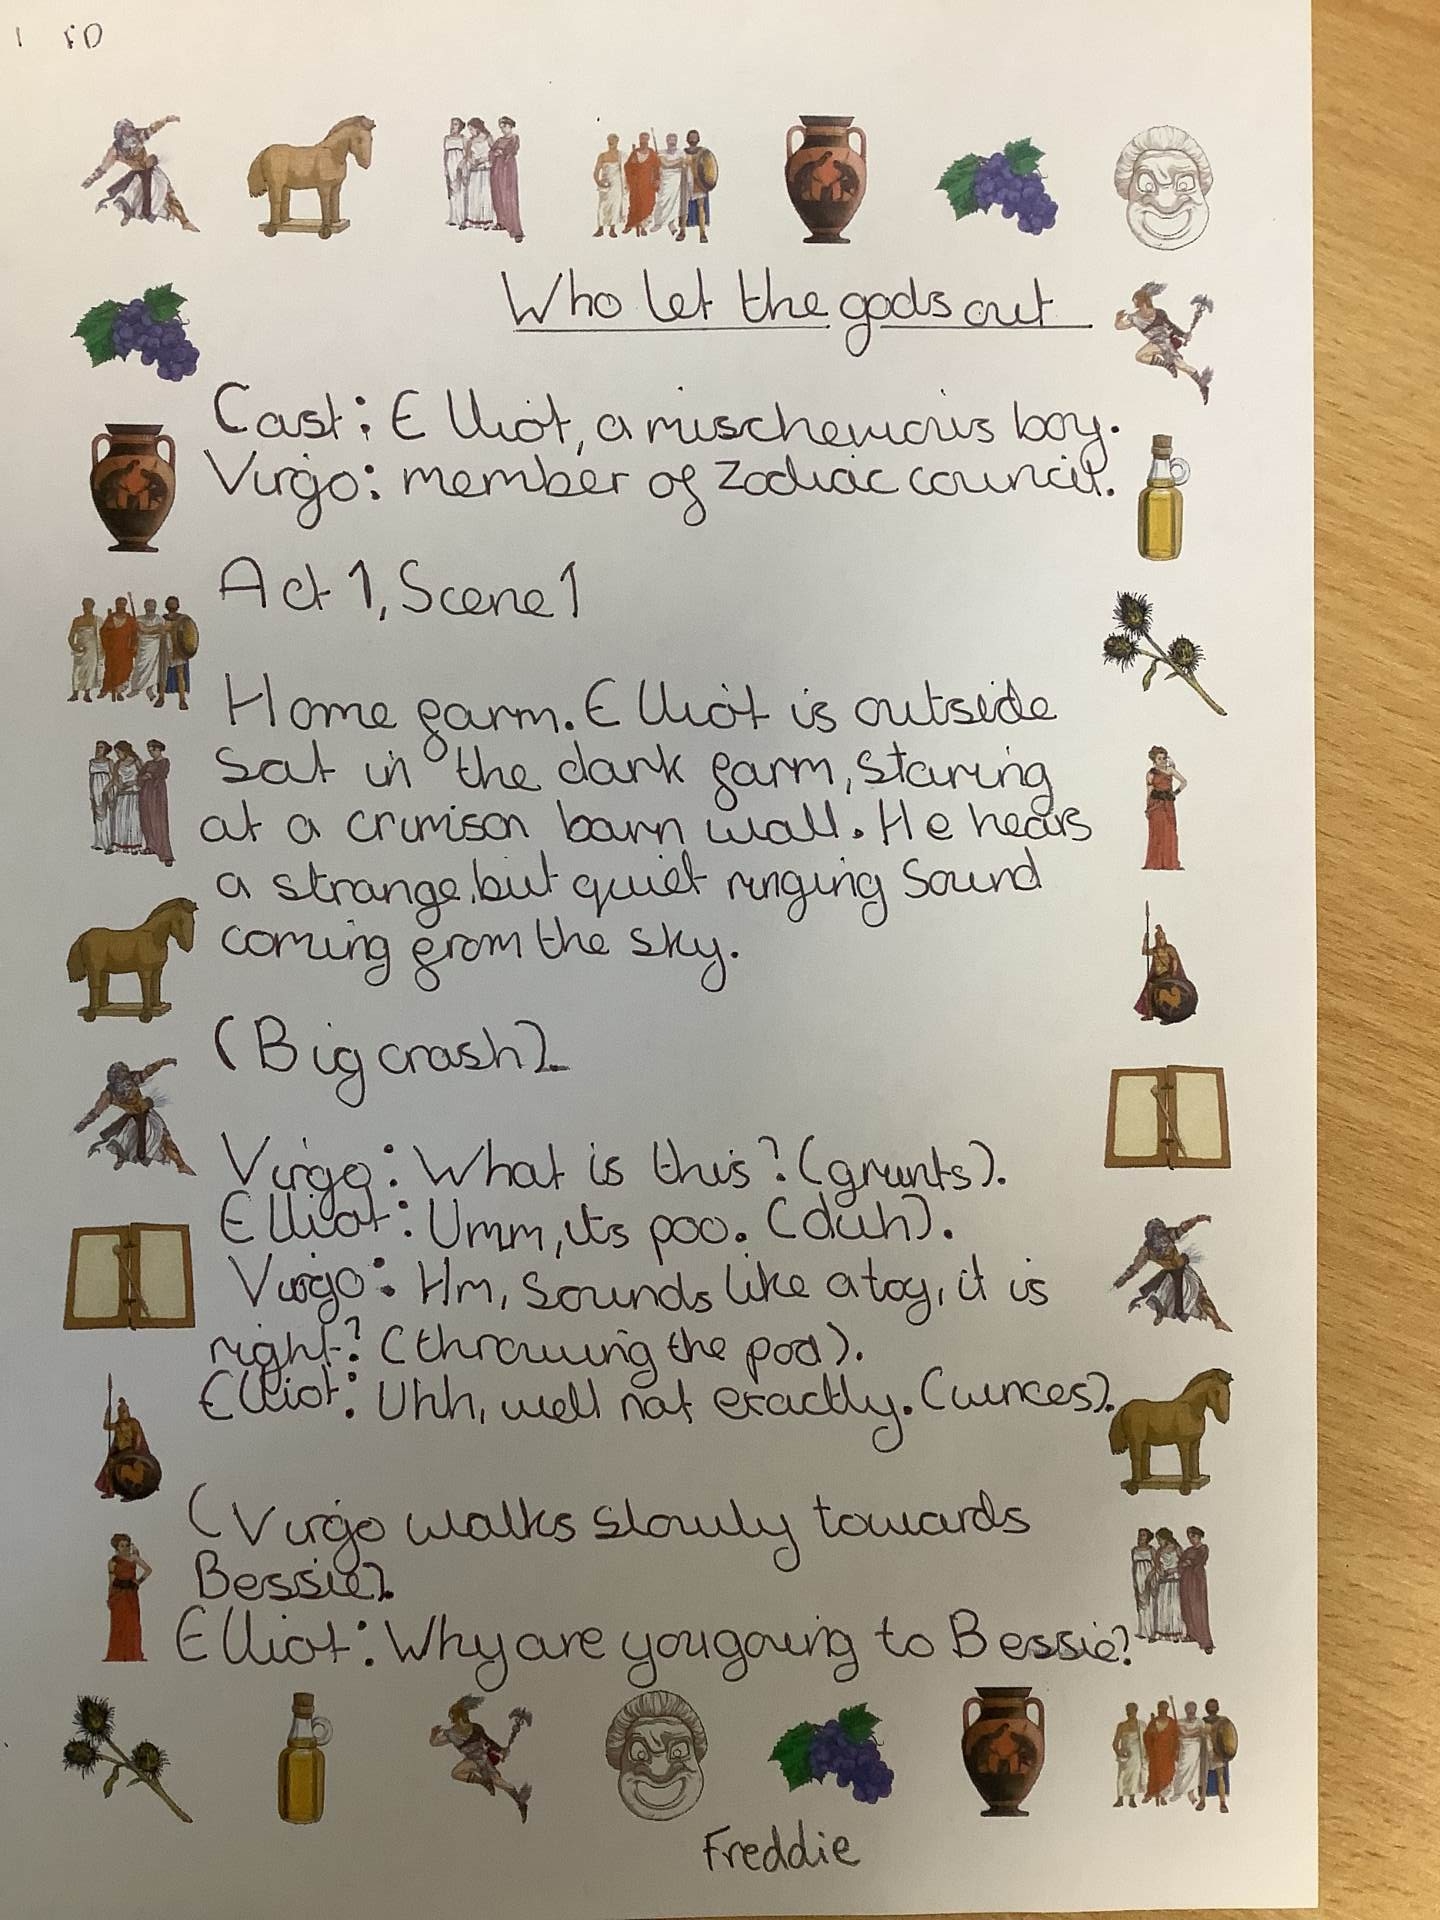 Who let the gods out
Cast: Elliot, a mischevious boy.
Virgo: member of Zodiac council.
Act 1, Scene 1
Home farm. Elliot is outside
sat in the dark farm, staring
at a crimison barn wall. He hears
a strange, but quiet ringing Sound
coming from the sky.
(Big crash).
Virgo: What is this? (grunts).
Elliot: Umm, its poo. (duh).
Virgo: Hm, Sounds like a toy, it is
right? (throwing the poo).
Elliot: Uhh, well not exactly. (winces).
(Virgo walks slowly towards
Bessie).
Elliot: Why are you going to Bessie?
Freddie